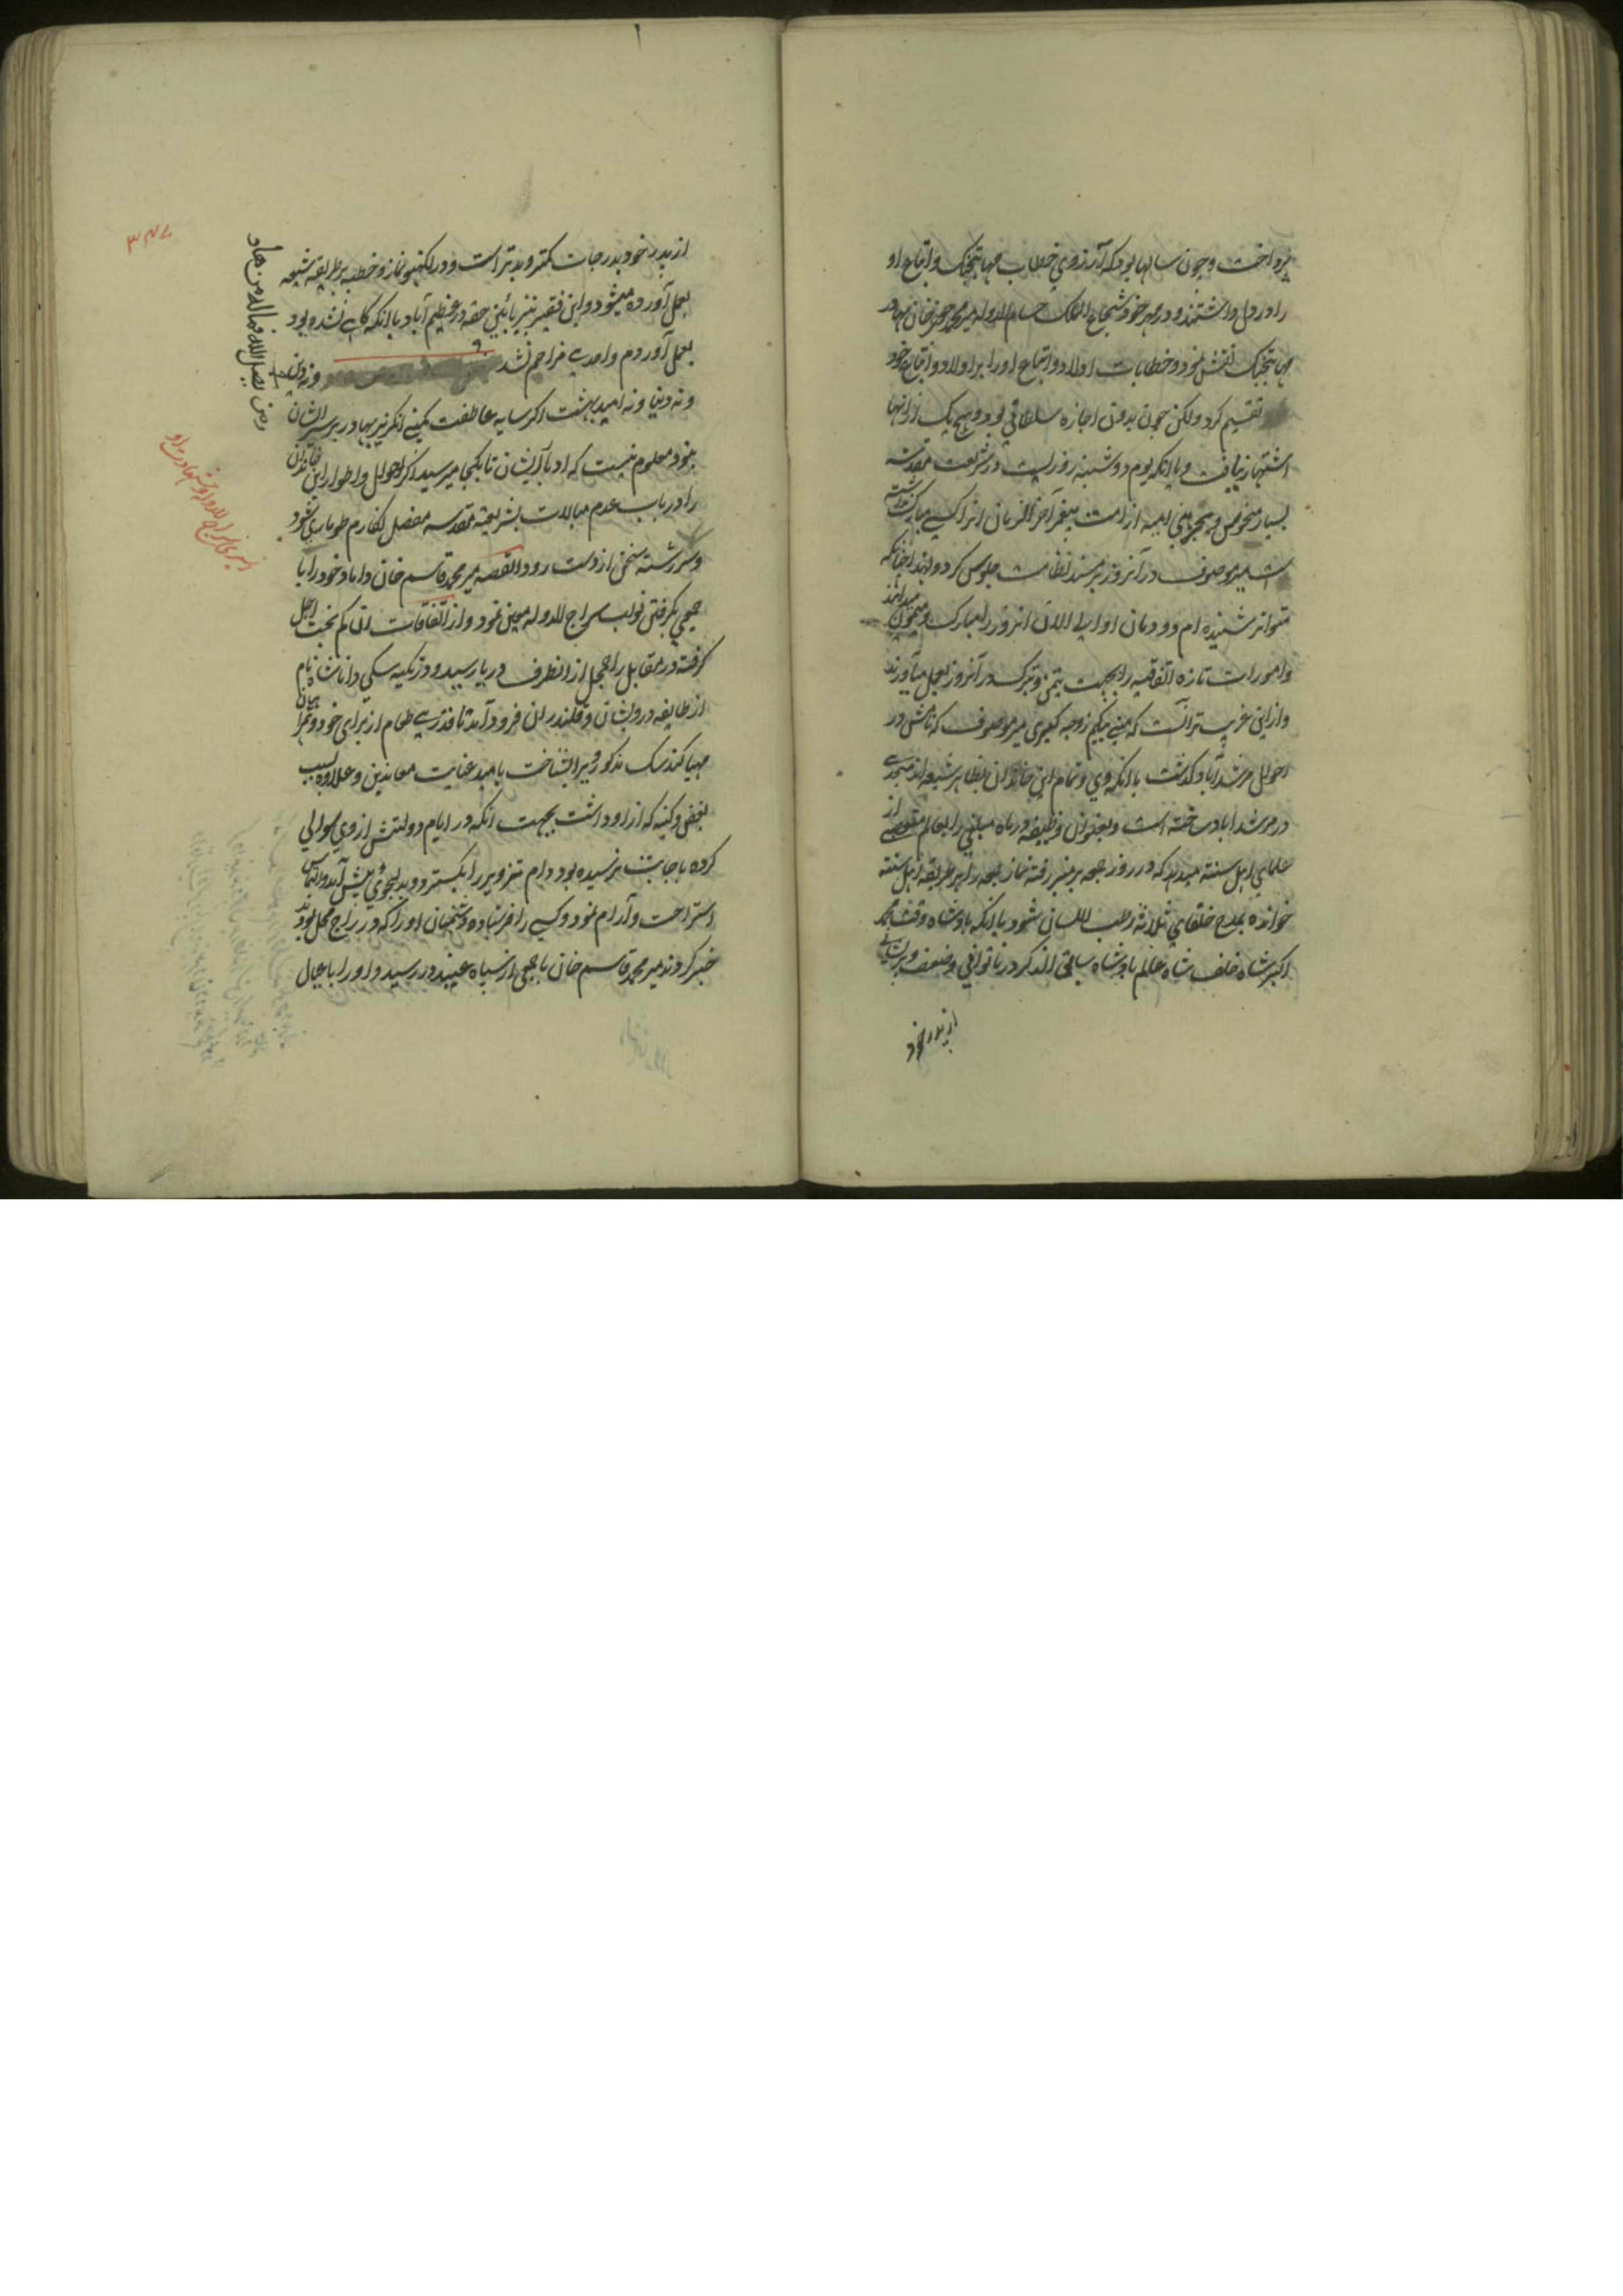 پرداخت و چون سالها بود که آرزوی خطاب مهابتجنگ و اتباع او
را در دل داشتند و در مهر خود شجاع الملک حسام الدوله میر محمد جعفر خان بهادر
مهابتجنگ نقش نمود و خطابات اولاد و اتباع او را بر اولاد و اتباع خود
تقسیم کرد ولکن چون بدون اجازه سلطانی بود و هیچ یک از انها
اشتهار نیافت و با انکه یوم دوشنبه روزیست در شریعت مقدسه
بسیار منحوس و بجز بنی امیه از امت پیغمبر آخر الزمان انرا کسی مبارک
میر موصوف در آنروز بر مسند نظامت جلوس کرد و بعد
متواتر شنیده ام دودمان او الی الان انروز را مبارک و میمون میدانند
و امورات تازه اتفاقیه را بجهت تیمن و تبرک در آنروز بعمل میآورند
و از این غریب تر انست که منی بیکم زوجه کبری میر موصوف که نامش در
احوال مرشد آباد گذشت با انکه وی و تمام این خاندان بظاهر شیعه اند مسجدی
در مرشد اباد ساخته است و بعنوان وظیفه هر ماه مبلغی را بعالم متعصبی از
علمای اهل سنته میدهد که در روز جمعه بر منبر رفته نماز جمعه را بر طریقه اهل سنته
خوانده بمدح خلفای ثلاثه رطب اللسان شود با انکه پادشاه وقت محمد
اکبر شاه خلف شاه عالم پادشاه سابق الذکر در ناتوانی و ضعف و پریشانی
از پدر خود
۳۴۷
از پدر خود بدرجات کمتر و بدتر است و در لکنهو نماز و خطبه بر طریقه شیعه
بعمل آورده میشود و این فقیر نیز بآئین حقه در عظیم آباد با انکه گاهی نشده بود
بعمل آوردم و احدی مزاحم نشد و نه دین
ونه دنیا و نه امید بهشت اکر سایه عاطفت کمپنی انکریز بهادر بر سر ایشان
نبود معلوم نیست که ادبار ایشان تا بکجا میرسید اکر احوال و اطوار این خاندان
را در باب عدم مبالات بشریعه مقدسه مفصل نکارم طوماری شود
و سر رشته سخن از دست رود القصه میر محمد قاسم خان داماد خود را با
جمعی بکرفتن نواب سراج الدوله معین نمود و از اتفاقات ان کم بخت اجل
کرفته در مقابل راجمحل از انطرف دریا رسید و در تکیه سکی دانا شاه نام
از طایفه درویشان و قلندران فرود آمد تا قدری طعام از برای خود و همراهیان
مهیا کند سک مذکور ویرا بشناخت بامید عنایت معاندین و علاوه بسبب
بغض و کینه که از او داشت بجهت انکه در ایام دولتش از وی سوالی
کرده باجابت نرسیده بود دام تزویر را بکسترد و بدلجوئی پیش آمد و التماس
استراحت و آرام نمود و کسی را فرستاده دشمنان او را که در راج محل بودند
خبر کردند میر محمد قاسم خان با جمعی از سپاه عینید در رسید و او را با عیال
ومن یضلل الله فما له من هاد